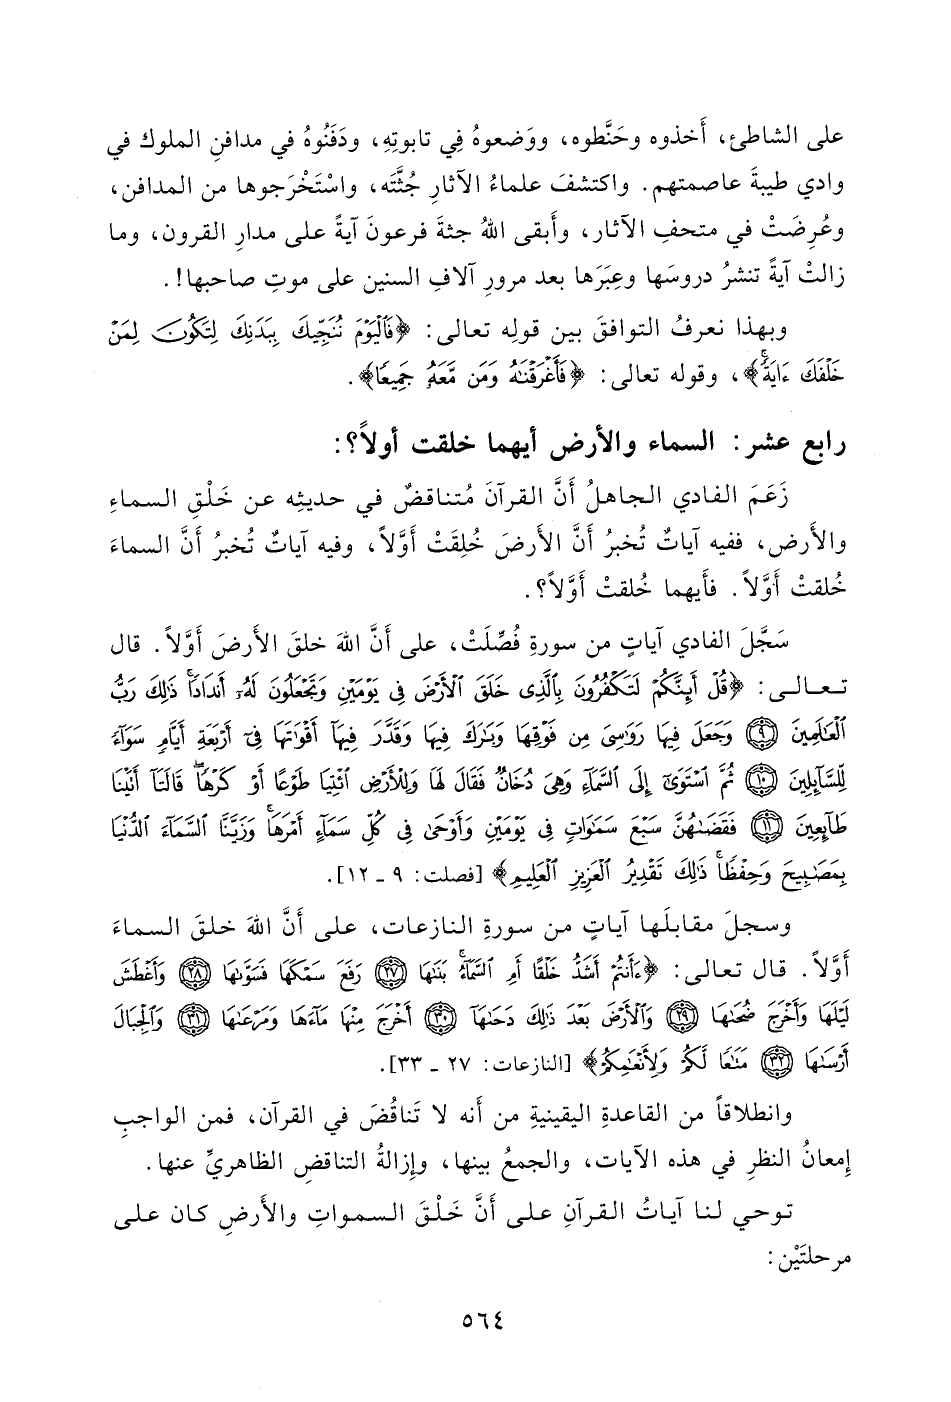 على الشاطئ، أَخذوه وحَنَّطوه، ووَضعوهُ فِي تابوتِهِ، ودَفَنُوهُ في مدافنِ الملوك في
وادي طيبةَ عاصمتهم. واكتشفَ علماءُ الآثارِ جُثَّتَه، واسْتَخْرَجوها من المدافن،
وعُرِضَتْ في متحفِ الآثار، وأَبقى اللهُ جثةَ فرعونَ آيةً على مدارِ القرون، وما
زالتْ آيةً تنشرُ دروسَها وعِبَرَها بعد مرورِ آلافِ السنين على موتِ صاحبها!.
وبهذا نعرفُ التوافقَ بين قولِه تعالى: ﴿فَٱلْيَوْمَ نُنَجِّيكَ بِبَدَنِكَ لِتَكُونَ لِمَنْ
خَلْفَكَ ءَايَةً﴾، وقوله تعالى: ﴿فَأَغْرَقْنَٰهُ وَمَن مَّعَهُۥ جَمِيعًا﴾.
رابع عشر: السماء والأرض أيهما خلقت أولاً؟:
زَعَمَ الفادي الجاهلُ أَنَّ القرآنَ مُتناقضٌ في حديثِه عن خَلْقِ السماءِ
والأَرض، ففيه آياتٌ تُخبرُ أَنَّ الأَرضَ خُلِقَتْ أَوَّلاً، وفيه آياتٌ تُخبرُ أَنَّ السماءَ
خُلقتْ أَوَّلاً. فأَيهما خُلقتْ أَوَّلاً؟.
سَجَّلَ الفادي آياتٍ من سورةِ فُصِّلَتْ، على أَنَّ اللهَ خلقَ الأَرضَ أَوَّلاً. قال
تعالى: ﴿قُلْ أَئِنَّكُمْ لَتَكْفُرُونَ بِٱلَّذِى خَلَقَ ٱلْأَرْضَ فِى يَوْمَيْنِ وَتَجْعَلُونَ لَهُۥٓ أَندَادًا ۚ ذَٰلِكَ رَبُّ
ٱلْعَٰلَمِينَ ﴿٩﴾ وَجَعَلَ فِيهَا رَوَٰسِىَ مِن فَوْقِهَا وَبَٰرَكَ فِيهَا وَقَدَّرَ فِيهَآ أَقْوَٰتَهَا فِىٓ أَرْبَعَةِ أَيَّامٍ سَوَآءً
لِّلسَّآئِلِينَ ﴿١٠﴾ ثُمَّ ٱسْتَوَىٰٓ إِلَى ٱلسَّمَآءِ وَهِىَ دُخَانٌ فَقَالَ لَهَا وَلِلْأَرْضِ ٱئْتِيَا طَوْعًا أَوْ كَرْهًا ۖ قَالَتَآ أَتَيْنَا
طَآئِعِينَ ﴿١١﴾ فَقَضَىٰهُنَّ سَبْعَ سَمَٰوَاتٍ فِى يَوْمَيْنِ وَأَوْحَىٰ فِى كُلِّ سَمَآءٍ أَمْرَهَا ۚ وَزَيَّنَّا ٱلسَّمَآءَ ٱلدُّنْيَا
بِمَصَٰبِيحَ وَحِفْظًا ۚ ذَٰلِكَ تَقْدِيرُ ٱلْعَزِيزِ ٱلْعَلِيمِ﴾ [فصلت: ٩ ـ ١٢].
وسجلَ مقابلَها آياتٍ من سورةِ النازعات، على أَنَّ اللهَ خلقَ السماءَ
أَوَّلاً. قال تعالى: ﴿ءَأَنتُمْ أَشَدُّ خَلْقًا أَمِ ٱلسَّمَآءُ ۚ بَنَىٰهَا ﴿٢٧﴾ رَفَعَ سَمْكَهَا فَسَوَّىٰهَا ﴿٢٨﴾ وَأَغْطَشَ
لَيْلَهَا وَأَخْرَجَ ضُحَىٰهَا ﴿٢٩﴾ وَٱلْأَرْضَ بَعْدَ ذَٰلِكَ دَحَىٰهَآ ﴿٣٠﴾ أَخْرَجَ مِنْهَا مَآءَهَا وَمَرْعَىٰهَا ﴿٣١﴾ وَٱلْجِبَالَ
أَرْسَىٰهَا ﴿٣٢﴾ مَتَٰعًا لَّكُمْ وَلِأَنْعَٰمِكُمْ﴾ [النازعات: ٢٧ ـ ٣٣].
وانطلاقاً من القاعدةِ اليقينيةِ من أَنه لا تَناقُضَ في القرآن، فمن الواجبِ
إِمعانُ النظرِ في هذه الآيات، والجمعُ بينها، وإِزالةُ التناقضِ الظاهريِّ عنها.
توحي لنا آياتُ القرآنِ على أَنَّ خَلْقَ السمواتِ والأَرضِ كان على
مرحلتَيْن:
٥٦٤